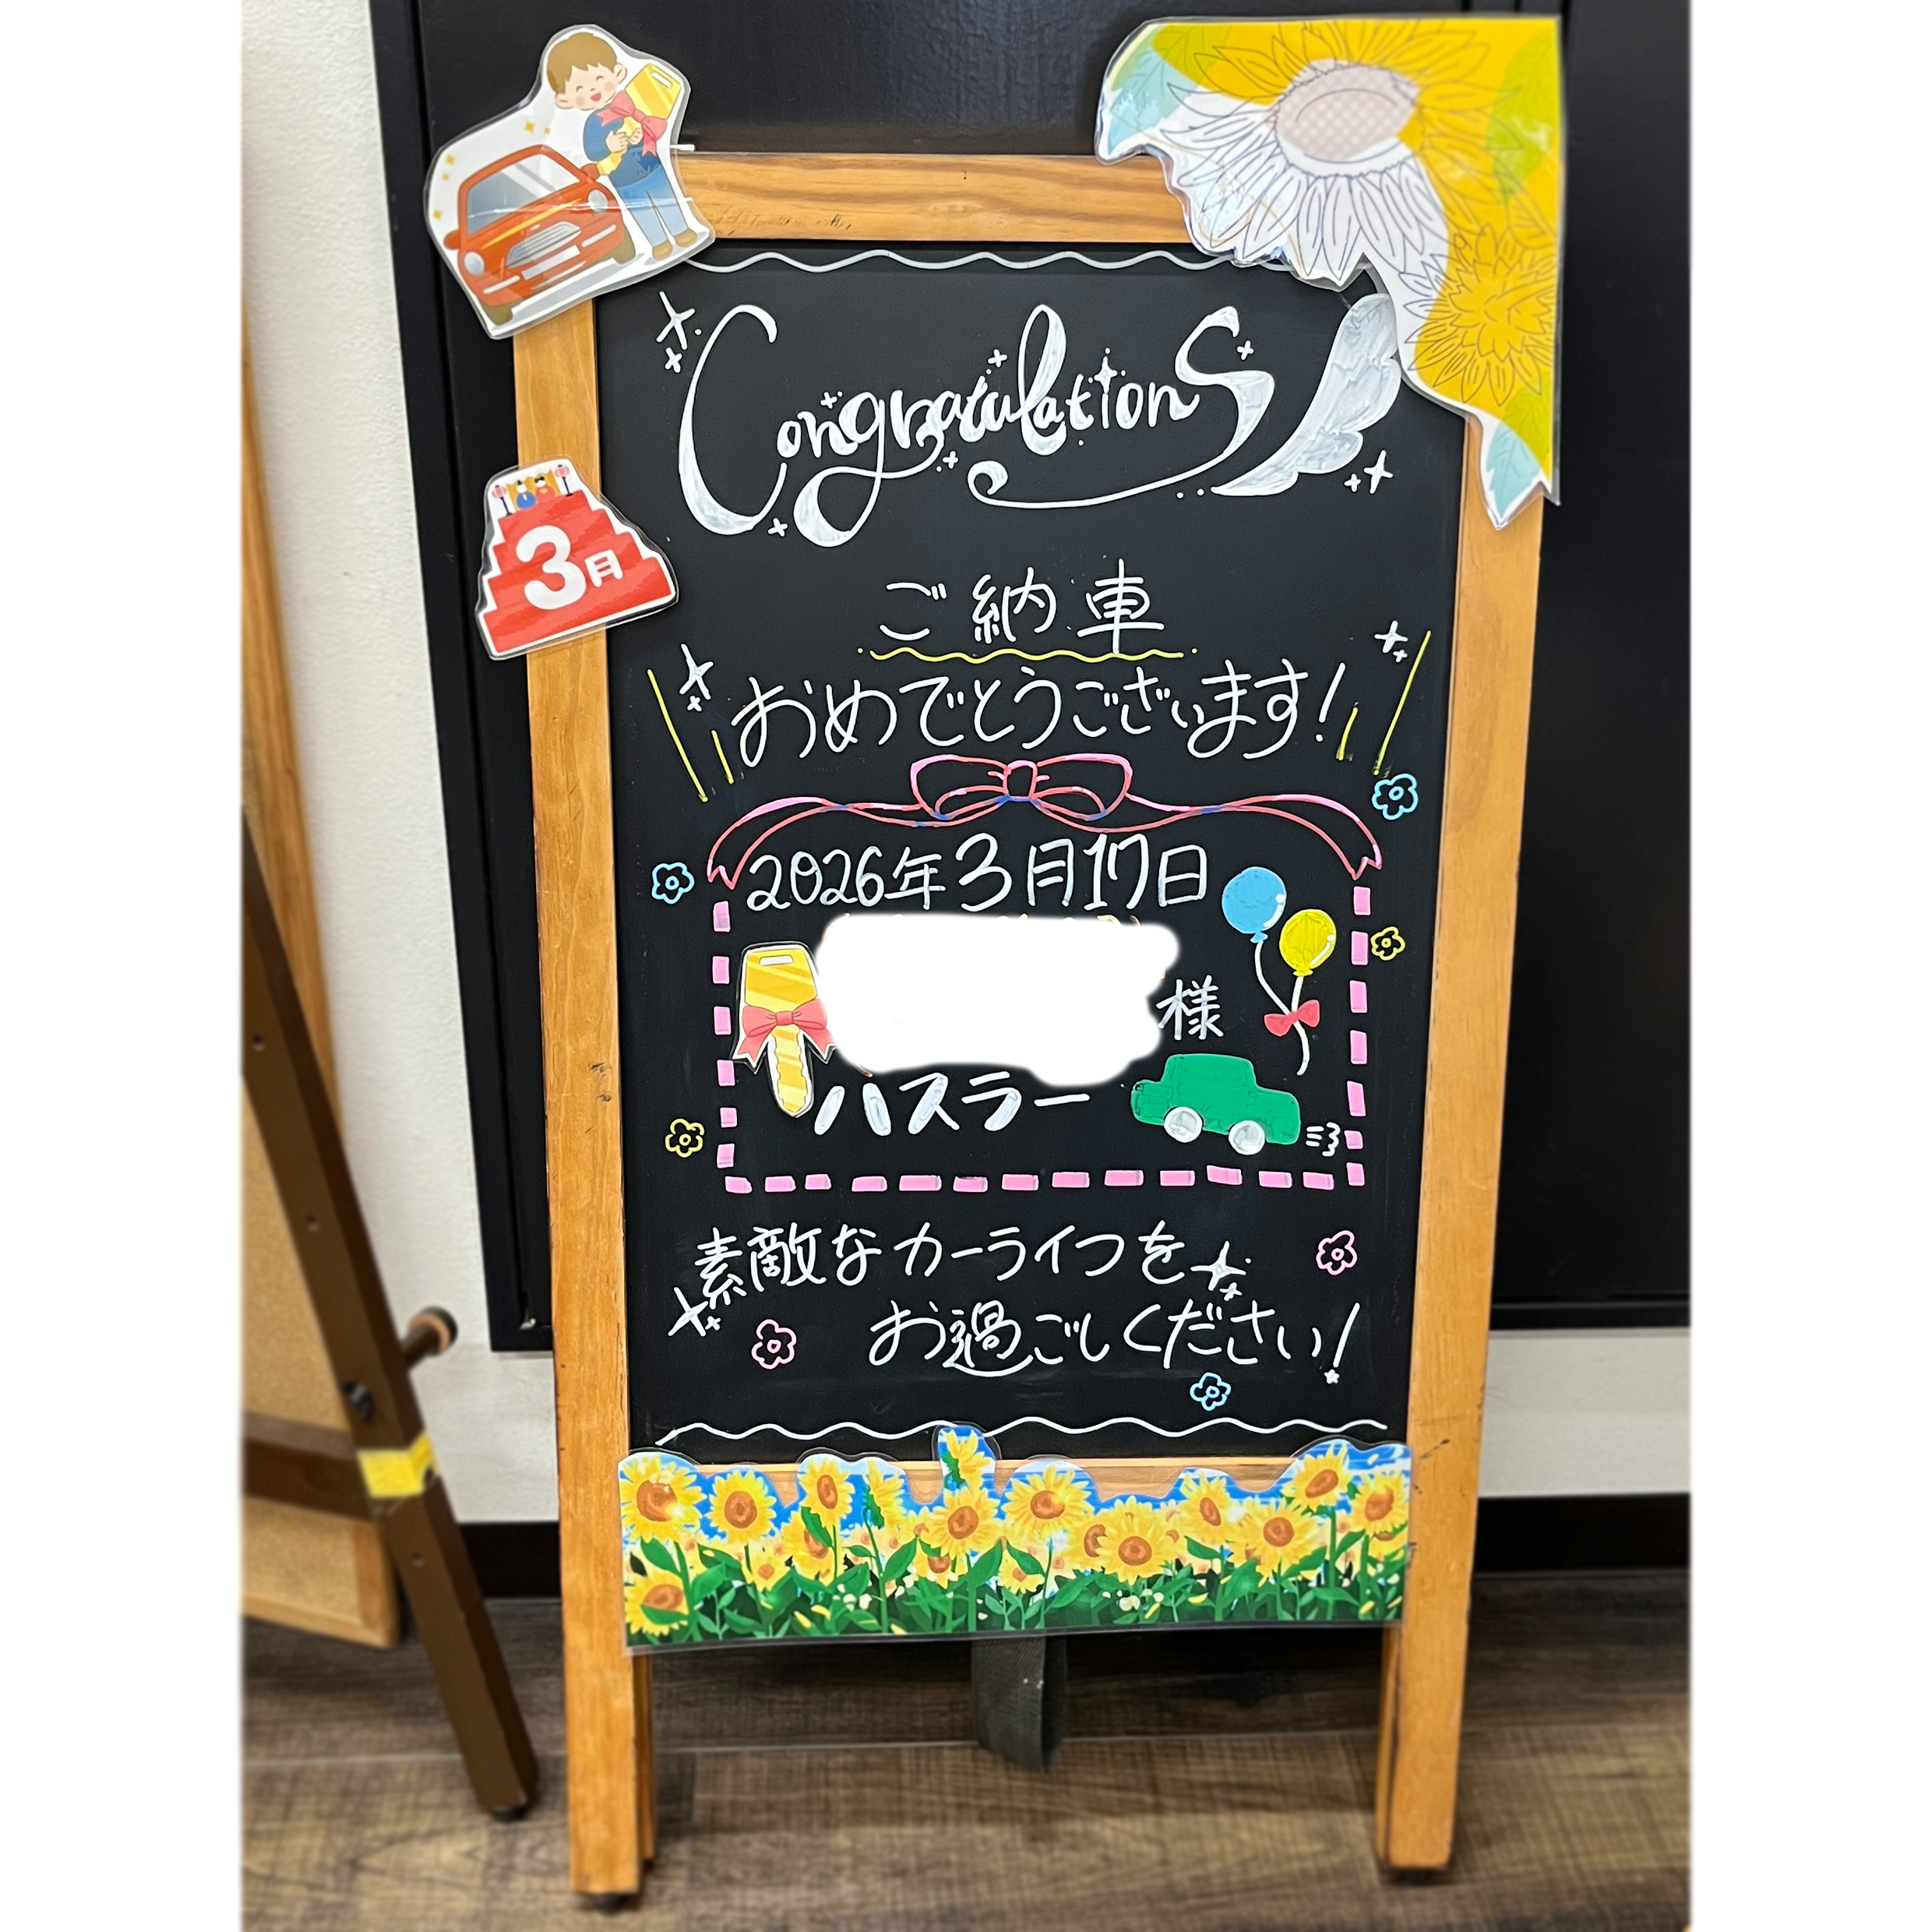 Congratulations
3月
ご納車
おめでとうございます!
2026年3月17日
様
ハスラー
素敵なカーライフを
お過ごしください!